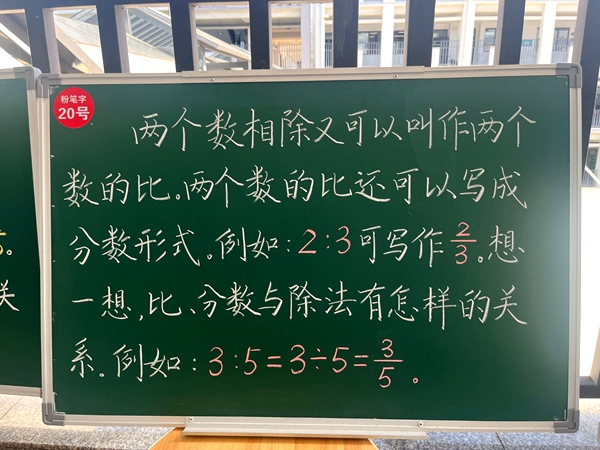 粉笔字
20号
两个数相除又可以叫作两个
数的比。两个数的比还可以写成
分数形式。例如:2:3可写作2/3。想
一想,比、分数与除法有怎样的关
系。例如:3:5=3÷5=3/5。
。
关